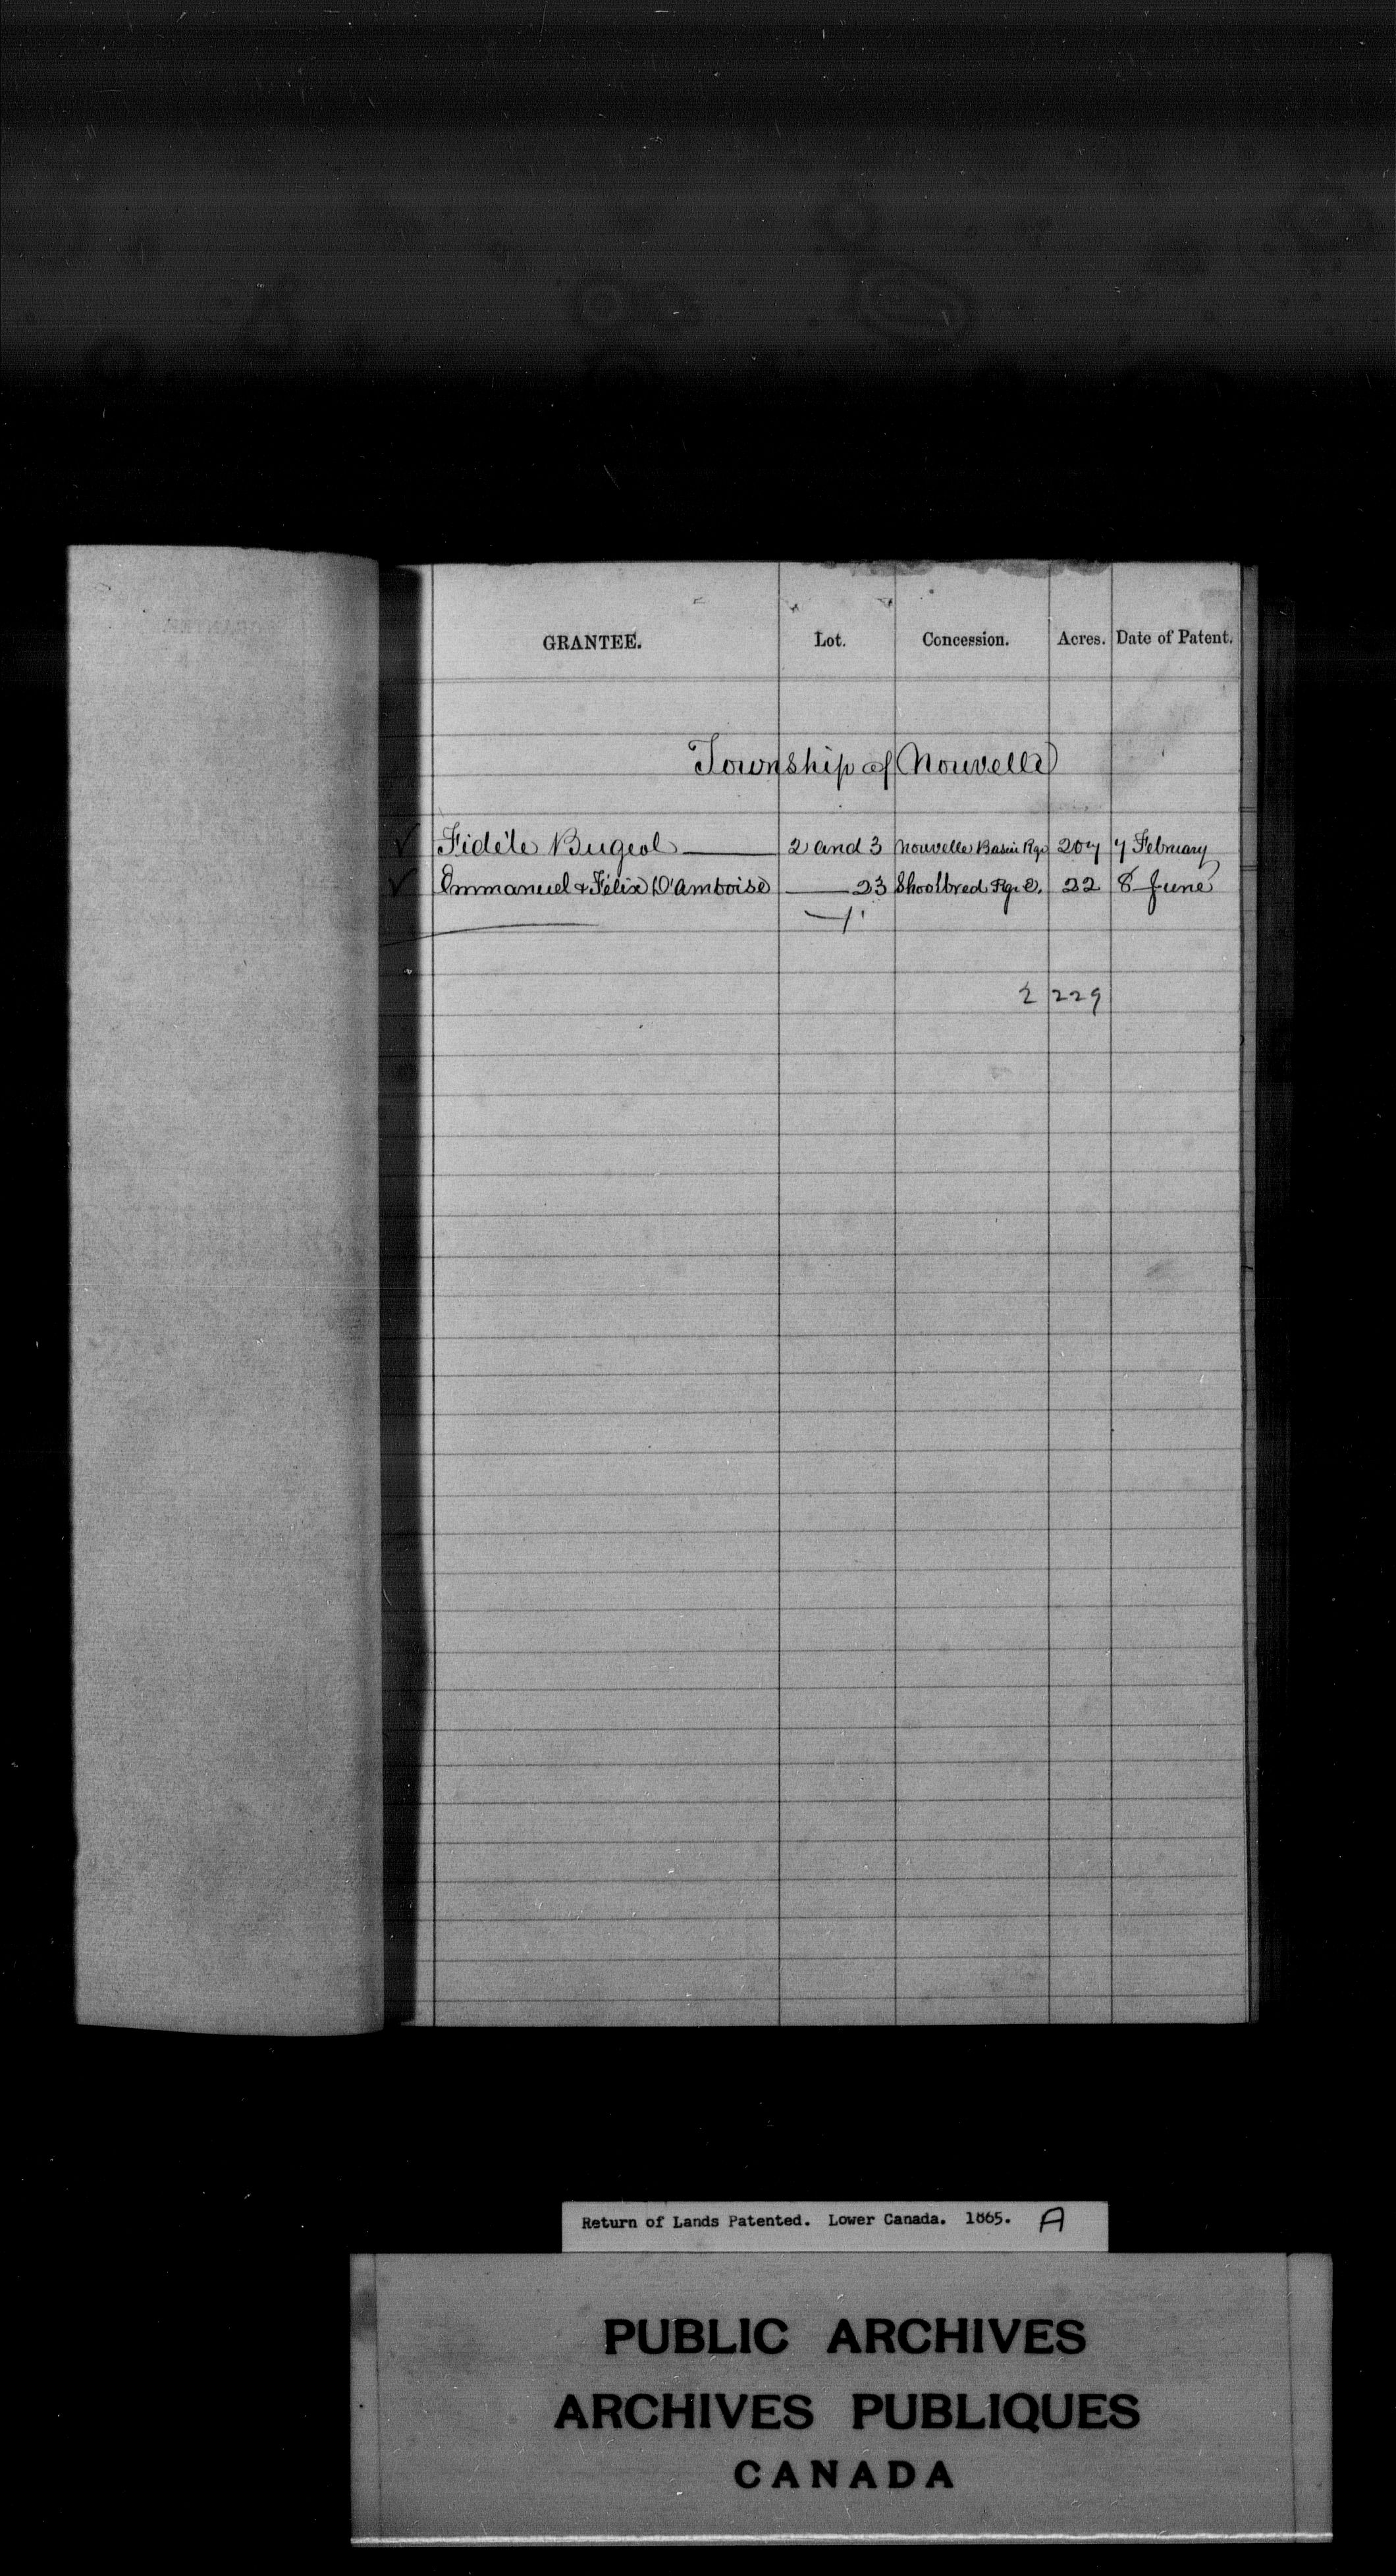 GRANTEE. Lot. Concession. Acres. Date of Patent.
Township of Nouvelle
✓ Fidèle Bugeol 2 and 3 Nouvelle Basin Rge 207 7 February
✓ Emmanuel & Félix D'amboise 23 Shoolbred Rge 22 8 June
2 229
Return of Lands Patented. Lower Canada. 1865. A
PUBLIC ARCHIVES
ARCHIVES PUBLIQUES
CANADA